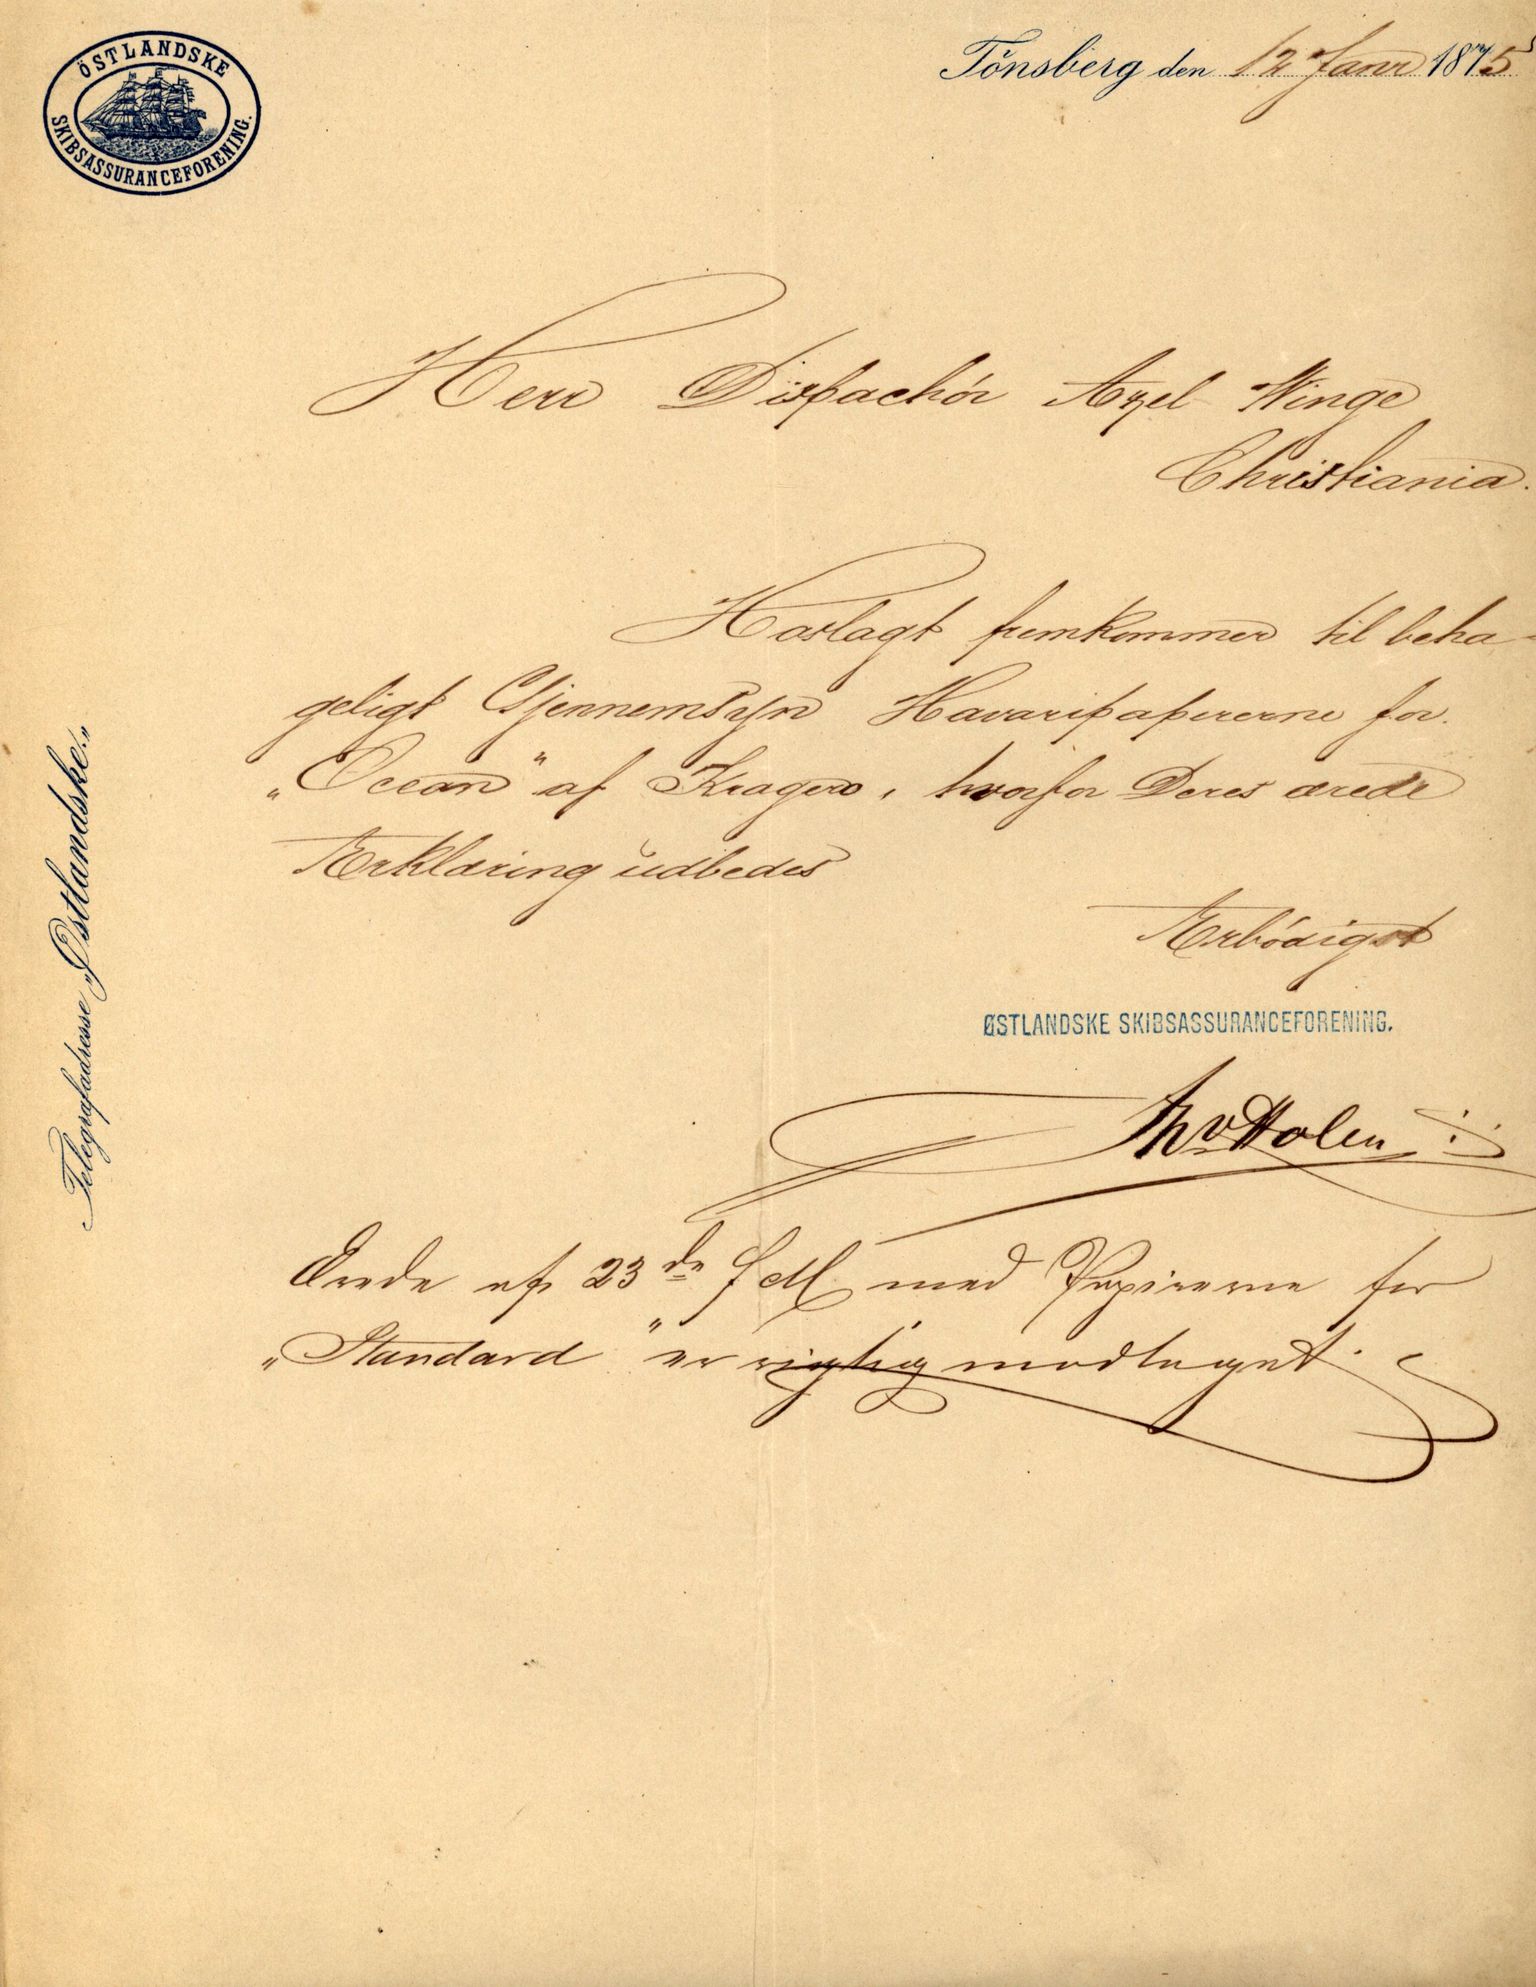 ÖSTLANDSKE
SKIBSASSURANCEFORENING.
Tönsberg den 12 Janr 1875
Herr Dispachör Axel Winge
Christiania.
Hoslagt fremkommer til beha-
geligt Gjennemsyn Havaripapirerne for
„Ocean" af Kragerø, hvorfor Deres ærede
Erklæring udbedes
Erbödigst
ØSTLANDSKE SKIBSASSURANCEFORENING.
Th v Holen
Ærede af 23de f M. med Papirerne for
„Standard" er rigtig modtaget.
Telegrafadresse „Østlandske."